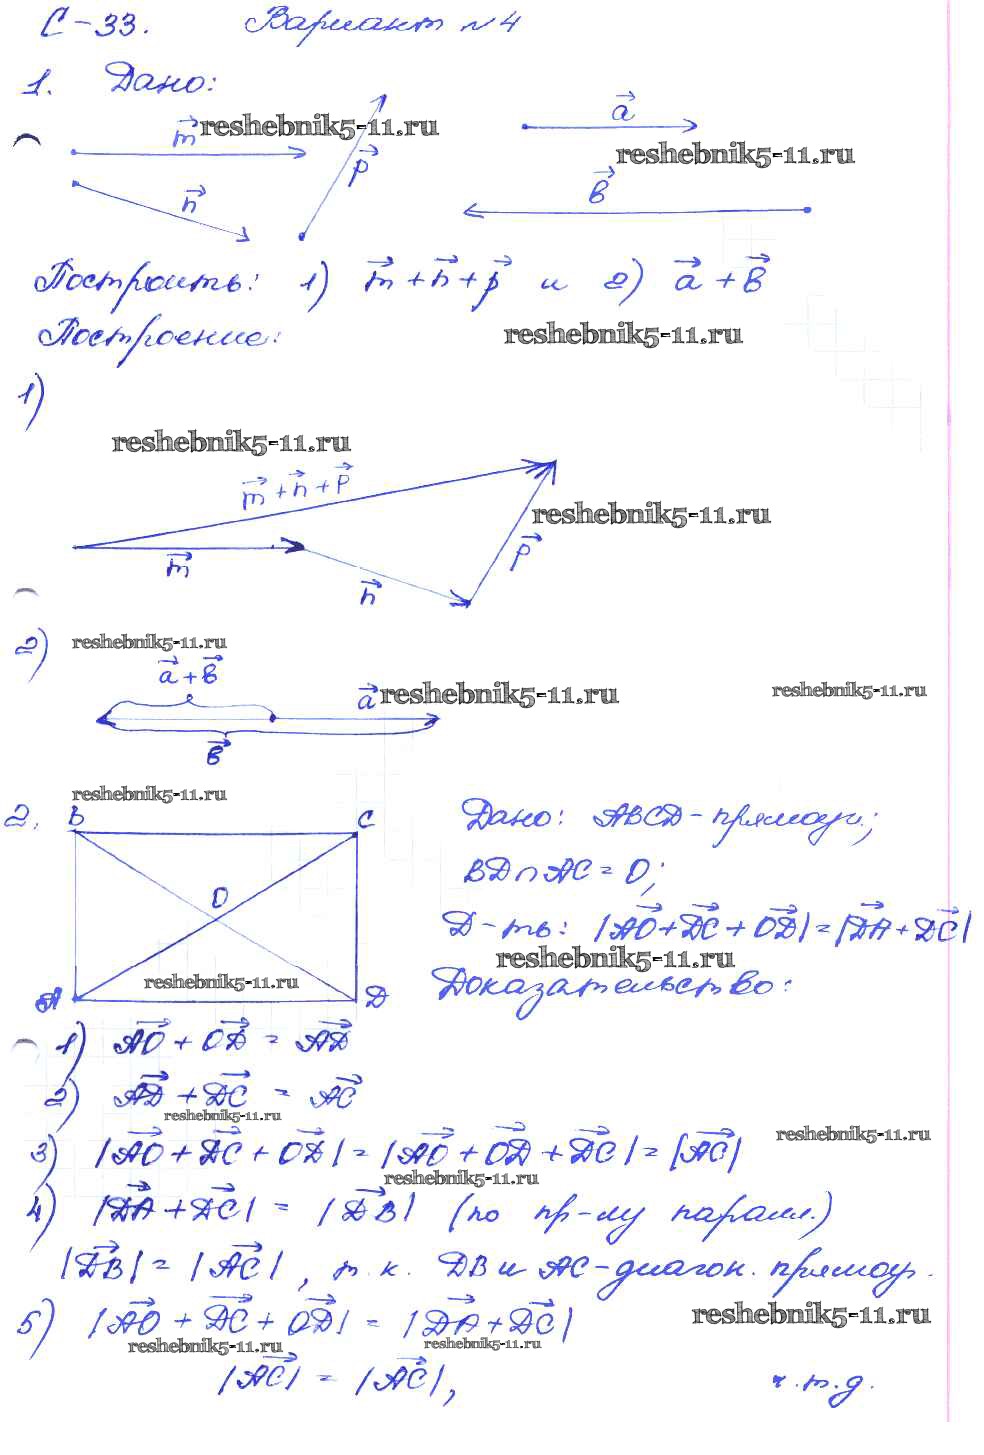 С-33. Вариант №4
1. Дано:
m⃗ reshebnik5-11.ru p⃗ a⃗
reshebnik5-11.ru
n⃗ в⃗
Построить: 1) m⃗ + n⃗ + p⃗ и 2) a⃗ + в⃗
Построение: reshebnik5-11.ru
1)
reshebnik5-11.ru
m⃗ + n⃗ + p⃗
reshebnik5-11.ru
m⃗ n⃗ p⃗
2) reshebnik5-11.ru
a⃗ + в⃗ a⃗ reshebnik5-11.ru reshebnik5-11.ru
в⃗
reshebnik5-11.ru
2. B C Дано: ABCD - прямоуг.;
BD ∩ AC = O;
O Д-ть: |AO⃗ + DC⃗ + OD⃗| = |DA⃗ + DC⃗|
reshebnik5-11.ru
reshebnik5-11.ru
A D Доказательство:
1) AO⃗ + OD⃗ = AD⃗
2) AD⃗ + DC⃗ = AC⃗
reshebnik5-11.ru
3) |AO⃗ + DC⃗ + OD⃗| = |AO⃗ + OD⃗ + DC⃗| = |AC⃗|
reshebnik5-11.ru
reshebnik5-11.ru
4) |DA⃗ + DC⃗| = |DB⃗| (по пр-лу паралл.)
|DB⃗| = |AC⃗|, т.к. DB и AC - диагон. прямоуг.
5) |AO⃗ + DC⃗ + OD⃗| = |DA⃗ + DC⃗|
reshebnik5-11.ru
reshebnik5-11.ru reshebnik5-11.ru
|AC⃗| = |AC⃗|, ч.т.д.